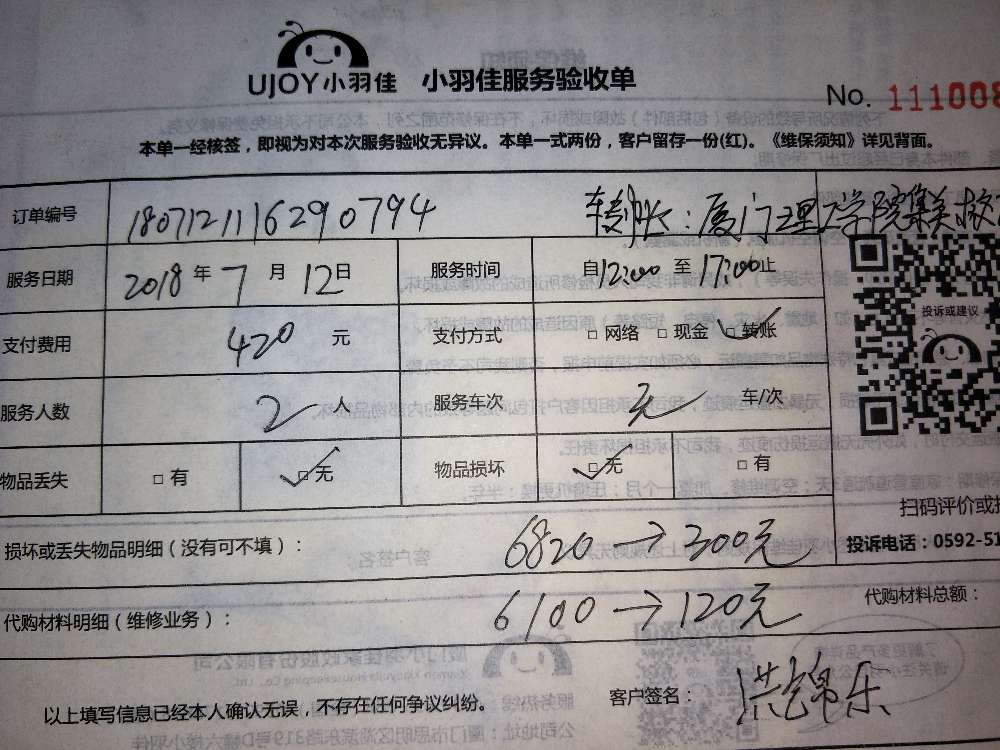 UJOY小羽佳 小羽佳服务验收单
No. 111008
本单一经核签，即视为对本次服务验收无异议。本单一式两份，客户留存一份(红)。《维保须知》详见背面。
订单编号 180712111629 0794 转帐：厦门理工学院集美校
服务日期 2018 年 7 月 12 日 服务时间 自12:00 至 17:00止
支付费用 420 元 支付方式 □ 网络 □ 现金 □ 转账
投诉或建议
服务人数 2 人 服务车次 无 车/次
物品丢失 □ 有 □ 无 物品损坏 □ 无 □ 有
扫码评价或投
损坏或丢失物品明细（没有可不填）： 6820→300元
投诉电话：0592-51
代购材料明细（维修业务）： 6100→120元 代购材料总额：
以上填写信息已经本人确认无误，不存在任何争议纠纷。 客户签名：